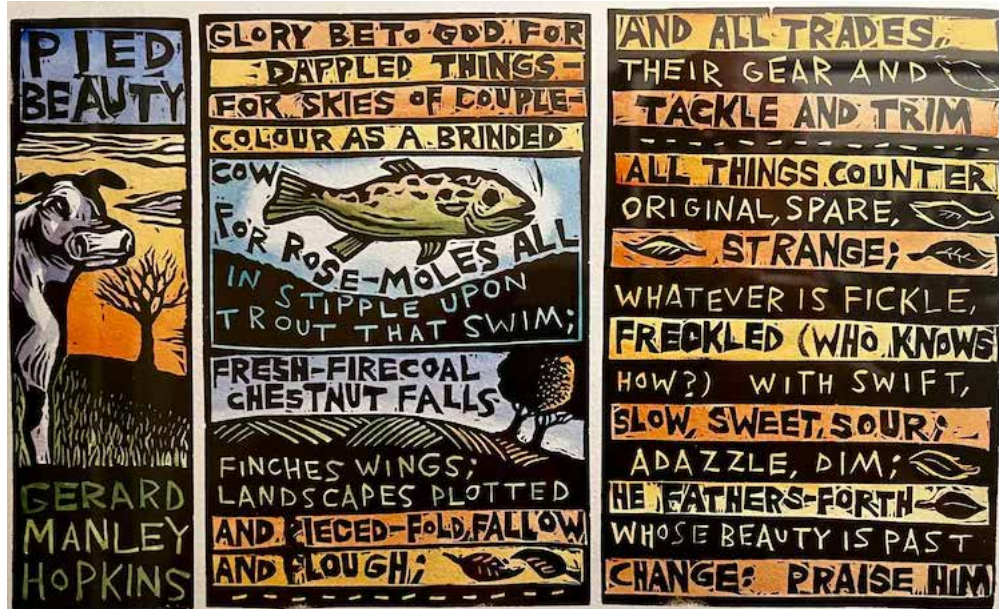 PIED
BEAUTY
GERARD
MANLEY
HOPKINS
GLORY BE TO GOD FOR
DAPPLED THINGS-
FOR SKIES OF COUPLE-
COLOUR AS A BRINDED
COW
FOR ROSE-MOLES ALL
IN STIPPLE UPON
TROUT THAT SWIM;
FRESH-FIRECOAL
CHESTNUT FALLS
FINCHES WINGS;
LANDSCAPES PLOTTED
AND PIECED-FOLD, FALLOW
AND PLOUGH;
AND ALL TRADES,
THEIR GEAR AND
TACKLE AND TRIM
ALL THINGS COUNTER
ORIGINAL, SPARE,
STRANGE;
WHATEVER IS FICKLE,
FRECKLED (WHO KNOWS
HOW?) WITH SWIFT,
SLOW, SWEET, SOUR;
ADAZZLE, DIM;
HE FATHERS-FORTH
WHOSE BEAUTY IS PAST
CHANGE: PRAISE HIM